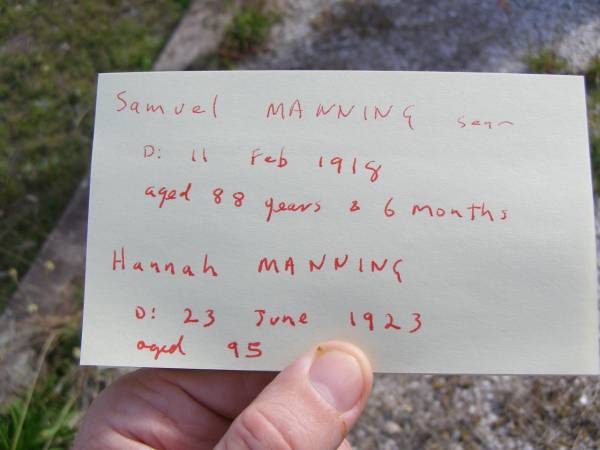 Samuel MANNING senr
D: 11 Feb 1918
aged 88 years & 6 months
Hannah MANNING
D: 23 June 1923
aged 95